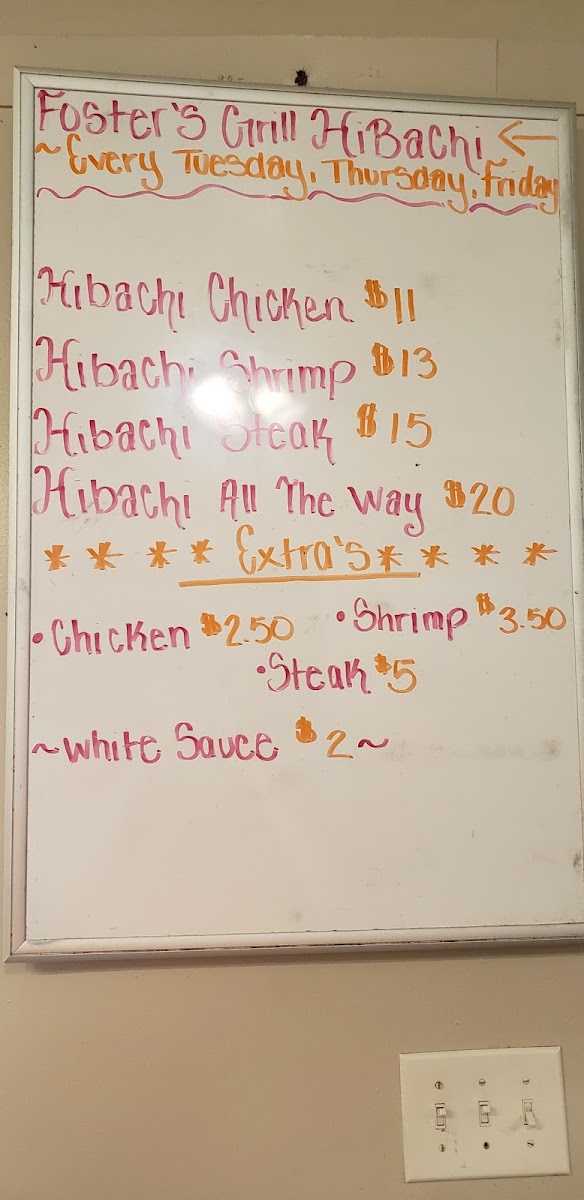 Foster's Grill HiBachi ←
~Every Tuesday, Thursday, Friday
Hibachi Chicken $11
Hibachi Shrimp $13
Hibachi Steak $15
Hibachi All The Way $20
* * * * Extra's * * * *
• Chicken $2.50 • Shrimp $3.50
• Steak $5
~White Sauce $2~